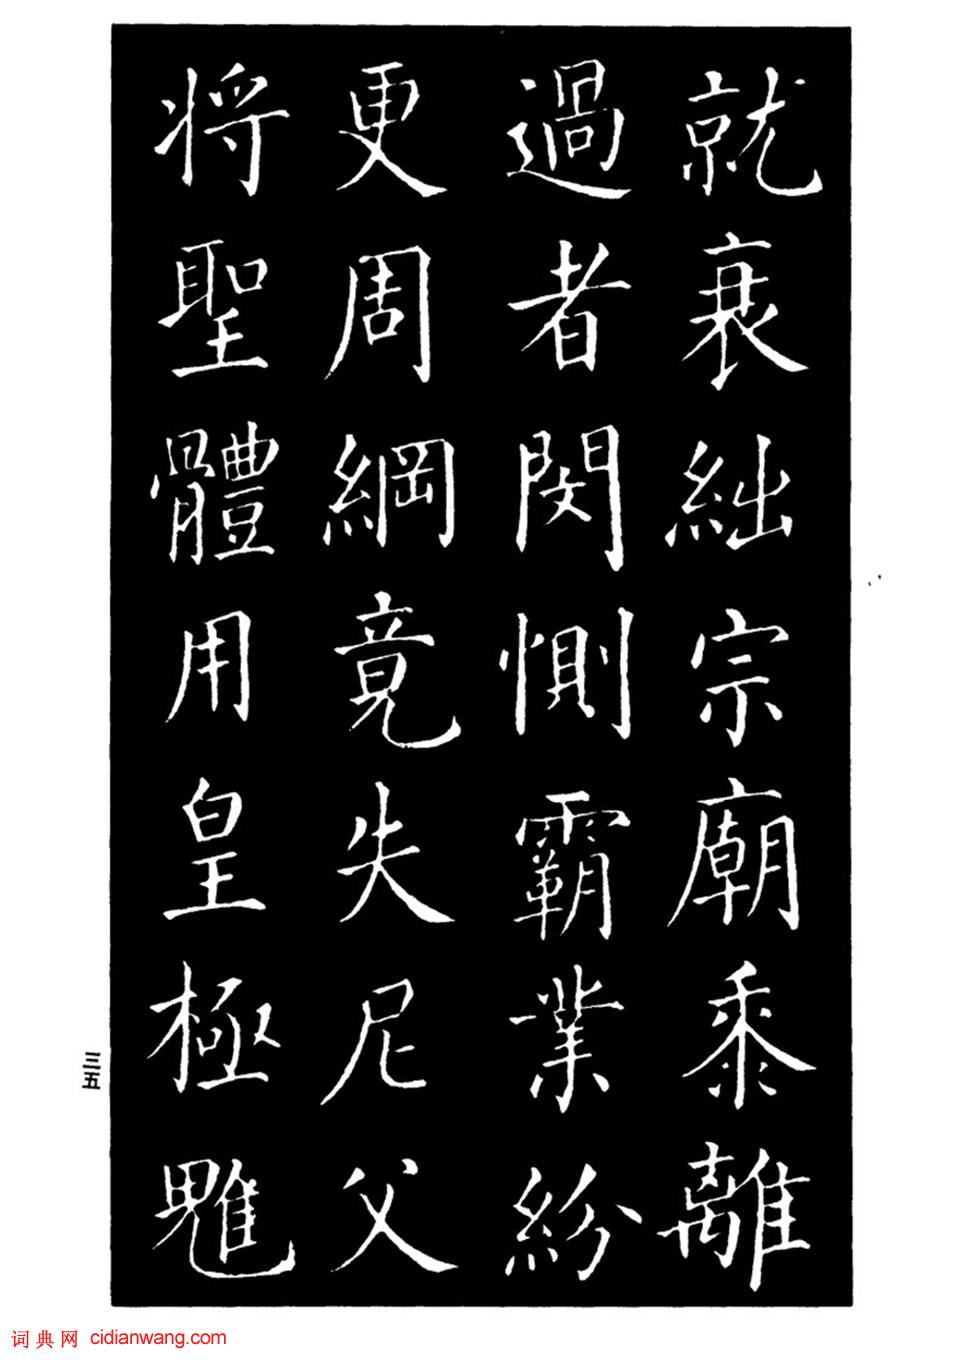 就衰絀宗廟黍離
過者閔惻霸業紛
更周綱竟失尼父
将聖體用皇極魋
三五
词典网 cidianwang.com